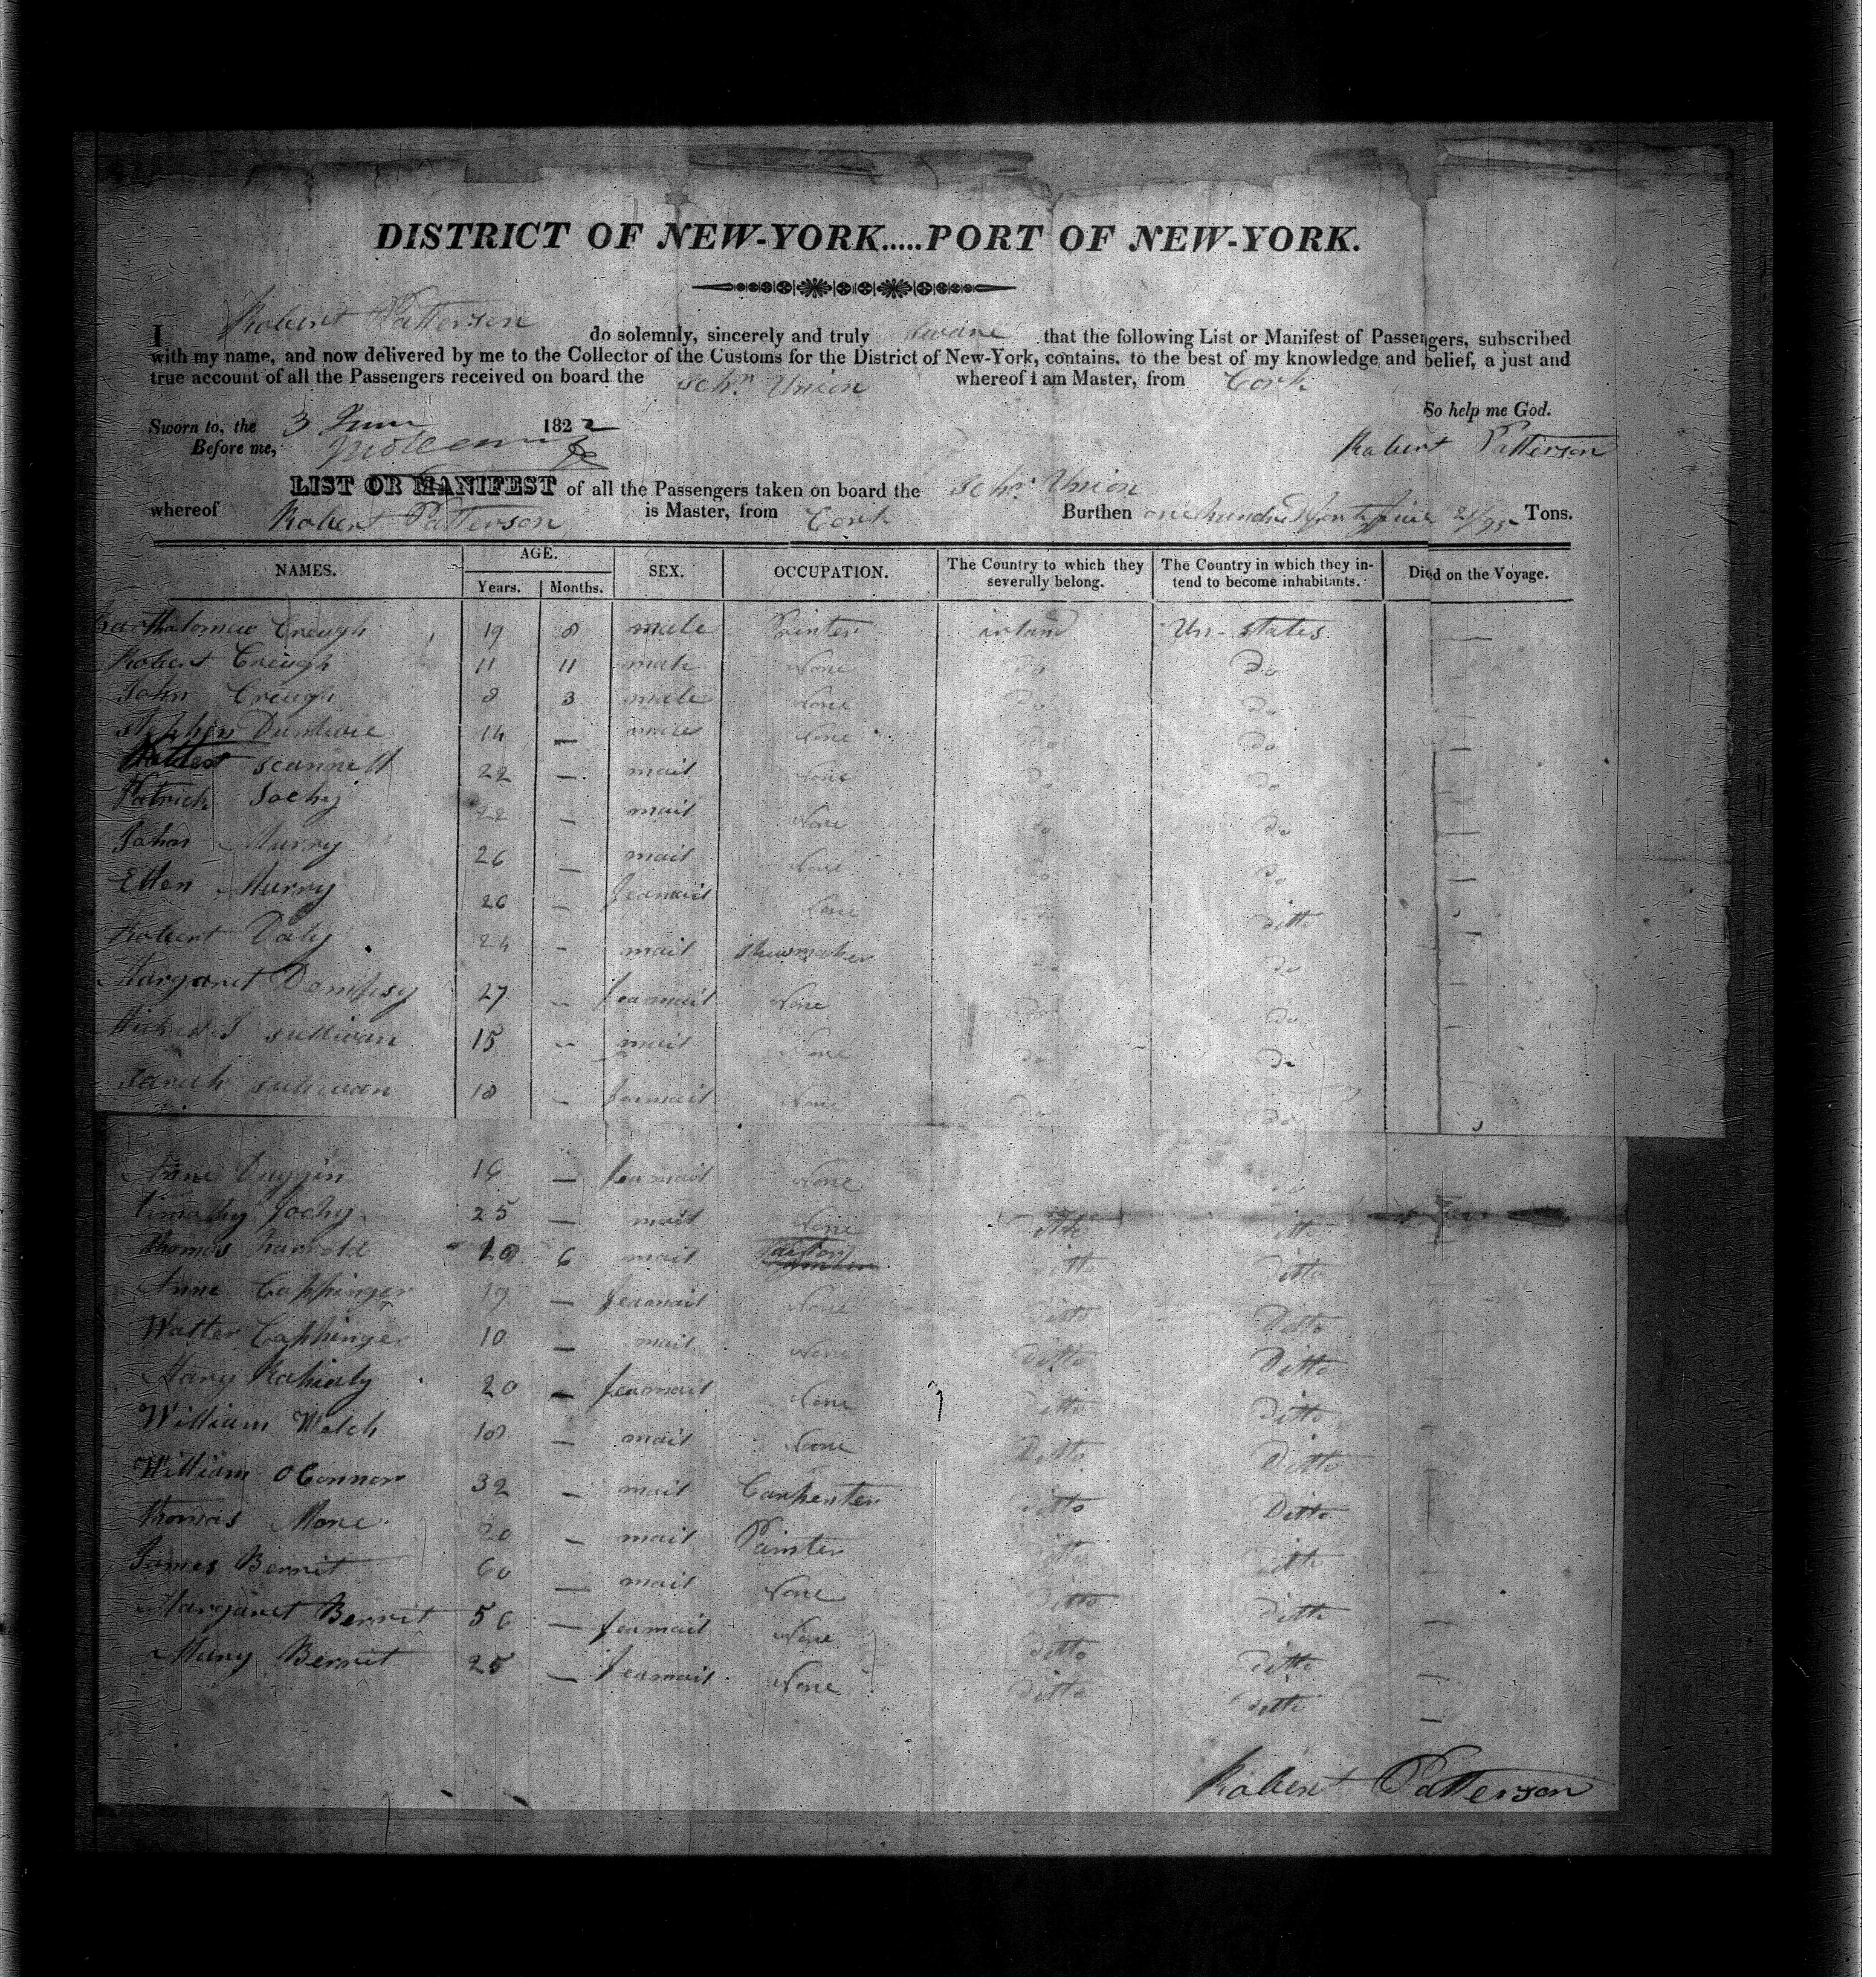 DISTRICT OF NEW-YORK.....PORT OF NEW-YORK.
I Robert Patterson do solemnly, sincerely and truly sware that the following List or Manifest of Passengers, subscribed
with my name, and now delivered by me to the Collector of the Customs for the District of New-York, contains, to the best of my knowledge and belief, a just and
true account of all the Passengers received on board the Schr. Union whereof I am Master, from Cork
So help me God.
Sworn to, the 3 June 1822
Before me, Robert Patterson
LIST OR MANIFEST of all the Passengers taken on board the Schr. Union
whereof Robert Patterson is Master, from Cork Burthen one hundred forty five Tons.
NAMES. AGE. Years. Months. SEX. OCCUPATION. The Country to which they severally belong. The Country in which they intend to become inhabitants. Died on the Voyage.
Bartholomew Creugh 19 8 male Printer irland Un- States —
Robert Creugh 11 11 male None Do Do —
John Creugh 8 3 male None Do Do —
Stephen 14 — male None Do Do —
Scannell 22 — mail None Do Do —
Patrick 22 — mail None Do Do —
John Murry 26 — mail None Do Do —
Ellen Murry 26 — feamail None Do ditto —
Robert Daly 24 — mail Shewmaker Do —
Margaret Dempsy 27 — feamail None Do Do —
Sullivan 15 — mail None Do Do —
Sarah Sullivan 18 — feamail None Do Do
Anne Duggin 16 — feamail None Do
Timothy 25 — mail None ditto ditto
Thomas Harrold 6 mail ditto Ditto
Anne Cophinger 19 — feamail None Ditto Ditto
Walter Cophinger 10 — mail None Ditto Ditto
Mary 20 — feamail None Ditto Ditto
William Welch 18 — mail None Ditto Ditto —
William OConnor 32 — mail Carpenter Ditto Ditto
Thomas More 20 — mail Painter Ditto Ditto
James Bernit 60 — mail None Ditto Ditto —
Margaret Bernit 56 — feamail None Ditto Ditto —
Mary Bernit 25 — feamail None Ditto Ditto —
Robert Patterson